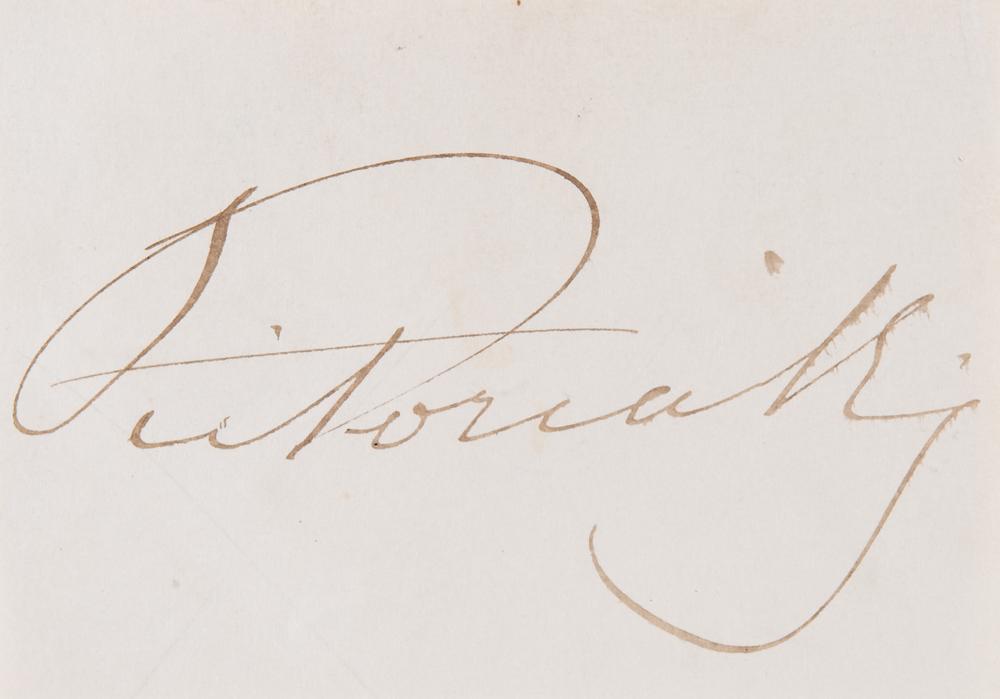 Victoria R.j